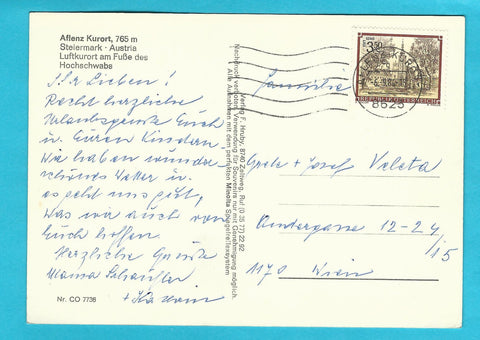 Aflenz Kurort, 765 m
Steiermark · Austria
Luftkurort am Fuße des
Hochschwabs
Ihr Lieben!
Recht herzliche
Urlaubsgrüße Euch
u. Euren Kindern.
Wir haben wunder-
schönes Wetter u.
es geht uns gut,
was wir auch von
Euch hoffen.
Herzliche Grüße
Mama
+
Nr. CO 7738
Verlag F. Hruby, 8740 Zeltweg, Ruf (0 35 77) 22 92
Nachdruck verboten! Verwendung für Souvenirs nur mit Genehmigung möglich.
Alle Aufnahmen mit dem perfekten Minolta Spiegelreflexsystem
3.50
REPUBLIK ÖSTERREICH
8623
Familie
Grete + Josef Veleta
12-24
/15
1170 Wien